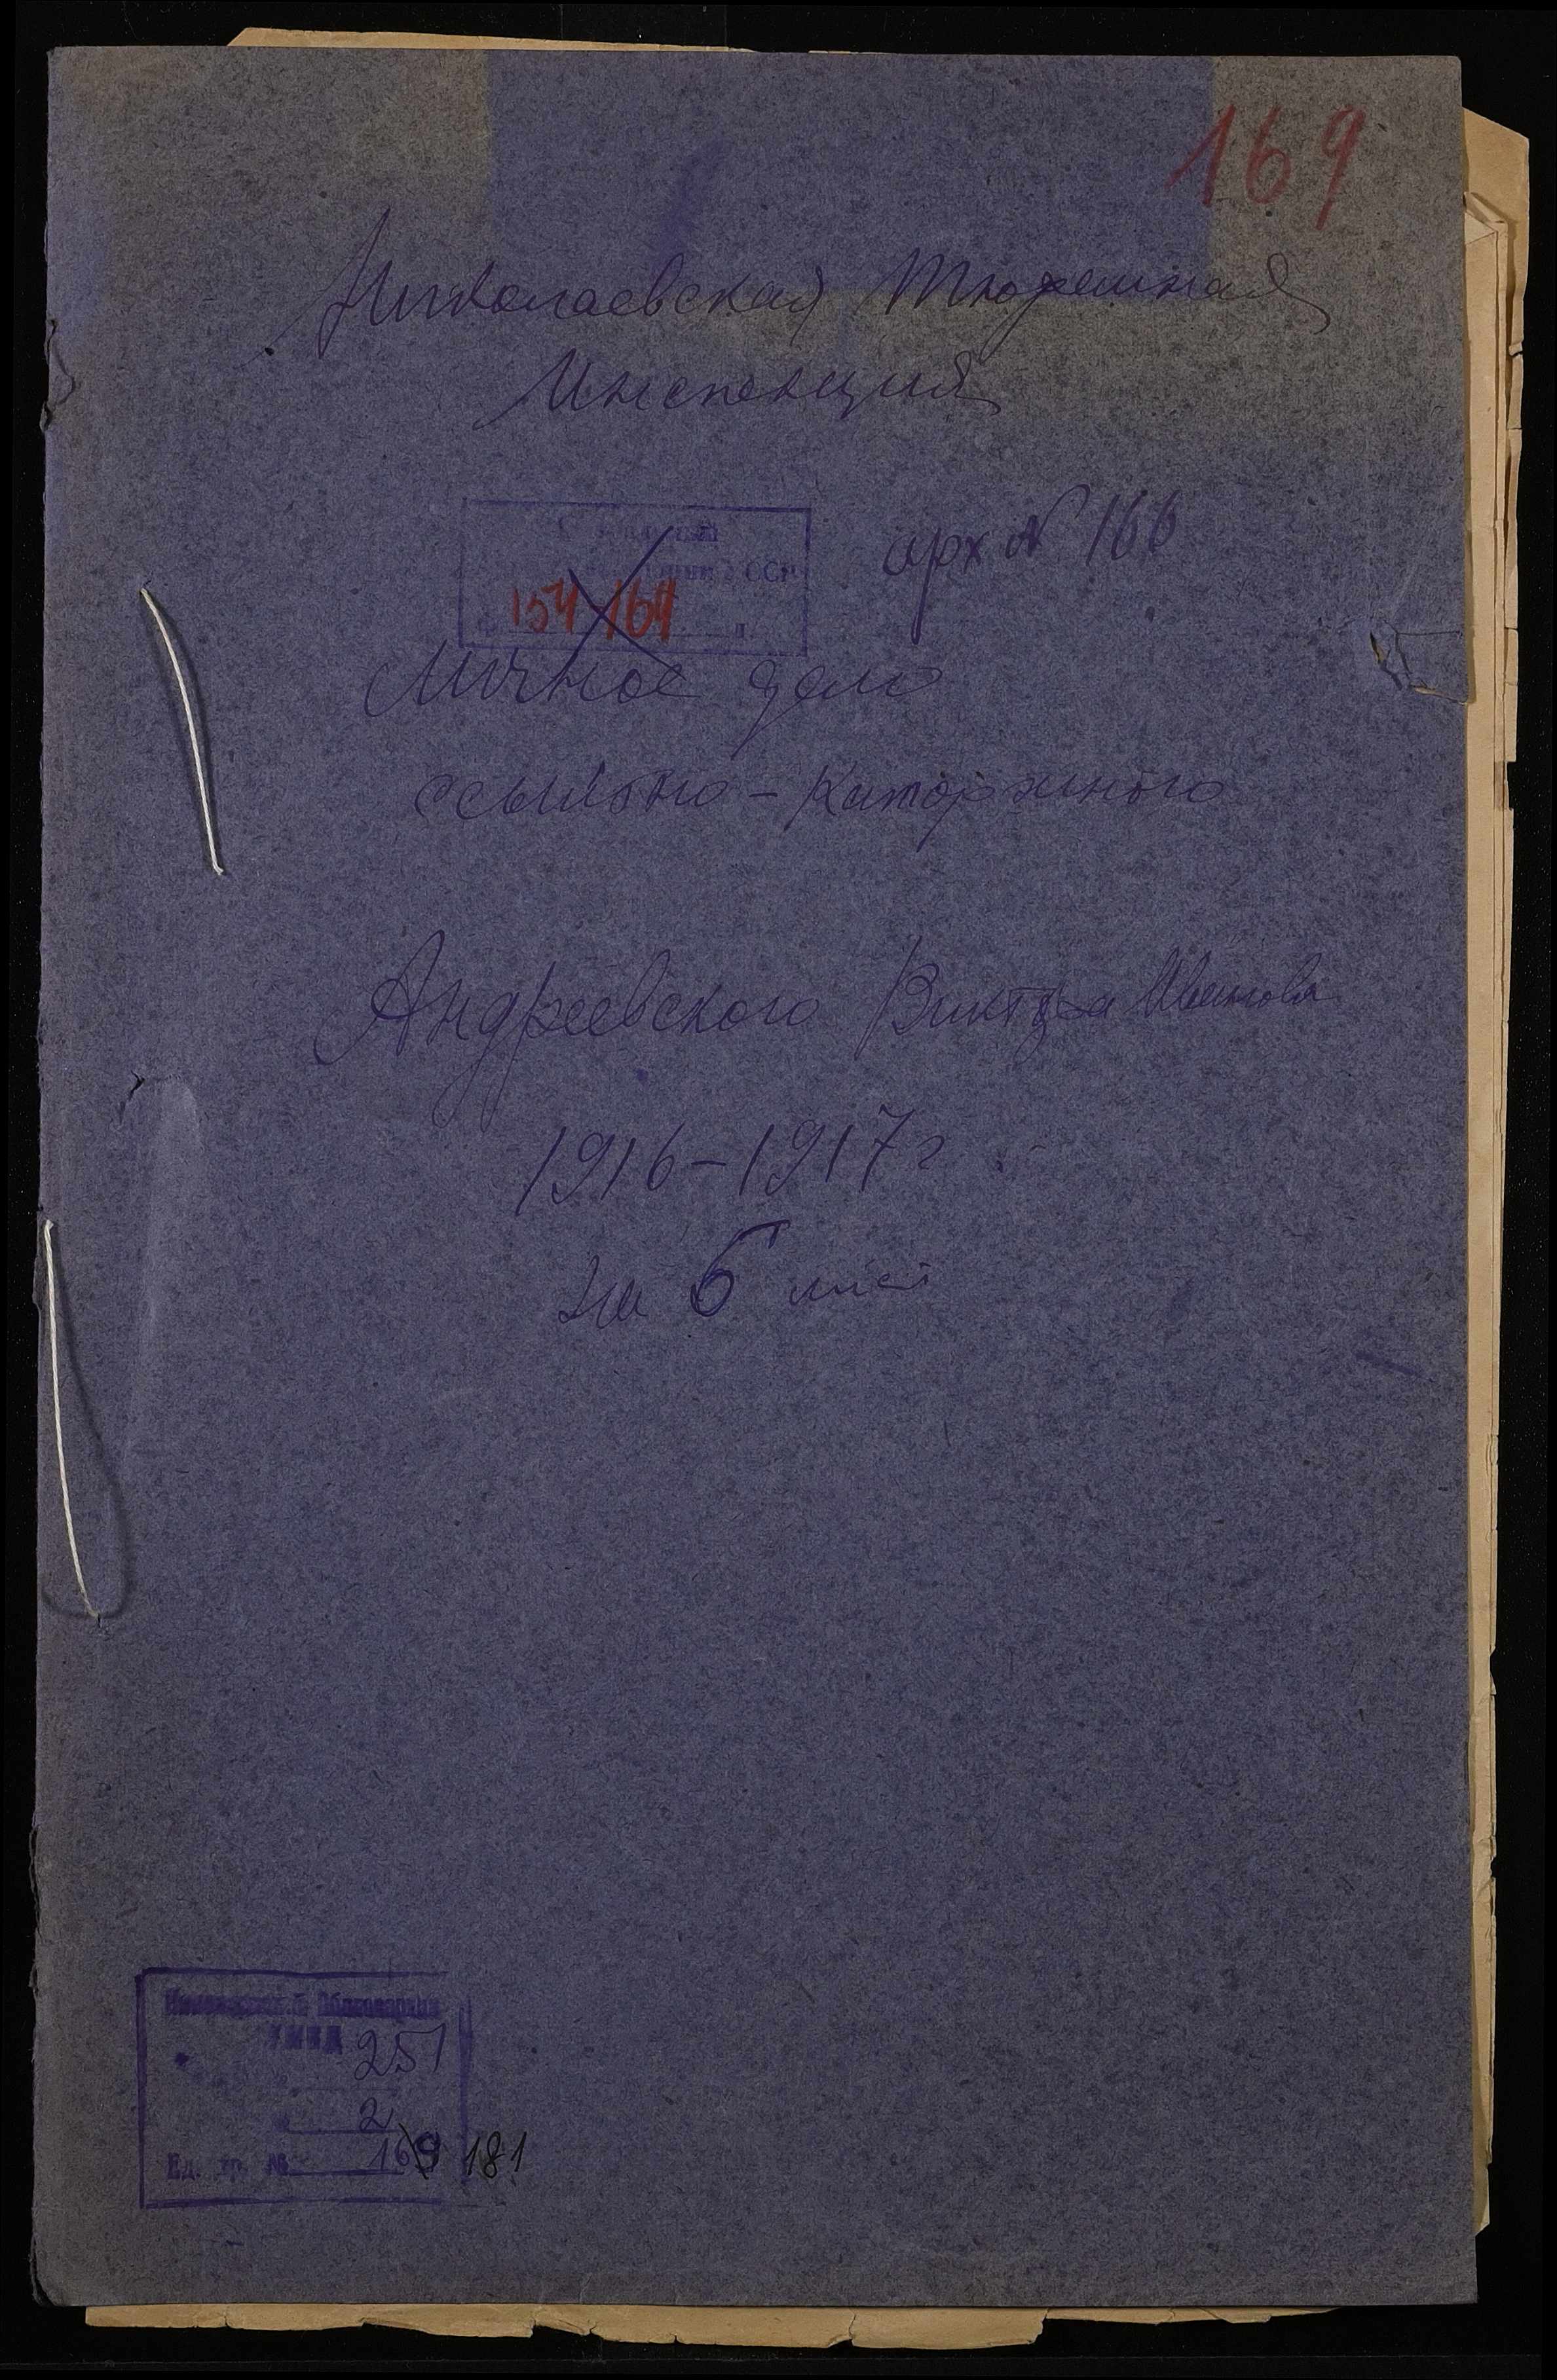 169
Николаевская Тюремная
Инспекция
арх № 166
154 164
Личное дело
ссыльно-каторжного
Андреевского Виктора Иванова
1916-1917 г
на 6 лист
Облгосархив
УНКВД
251
2
Ед. хр. № 169 181